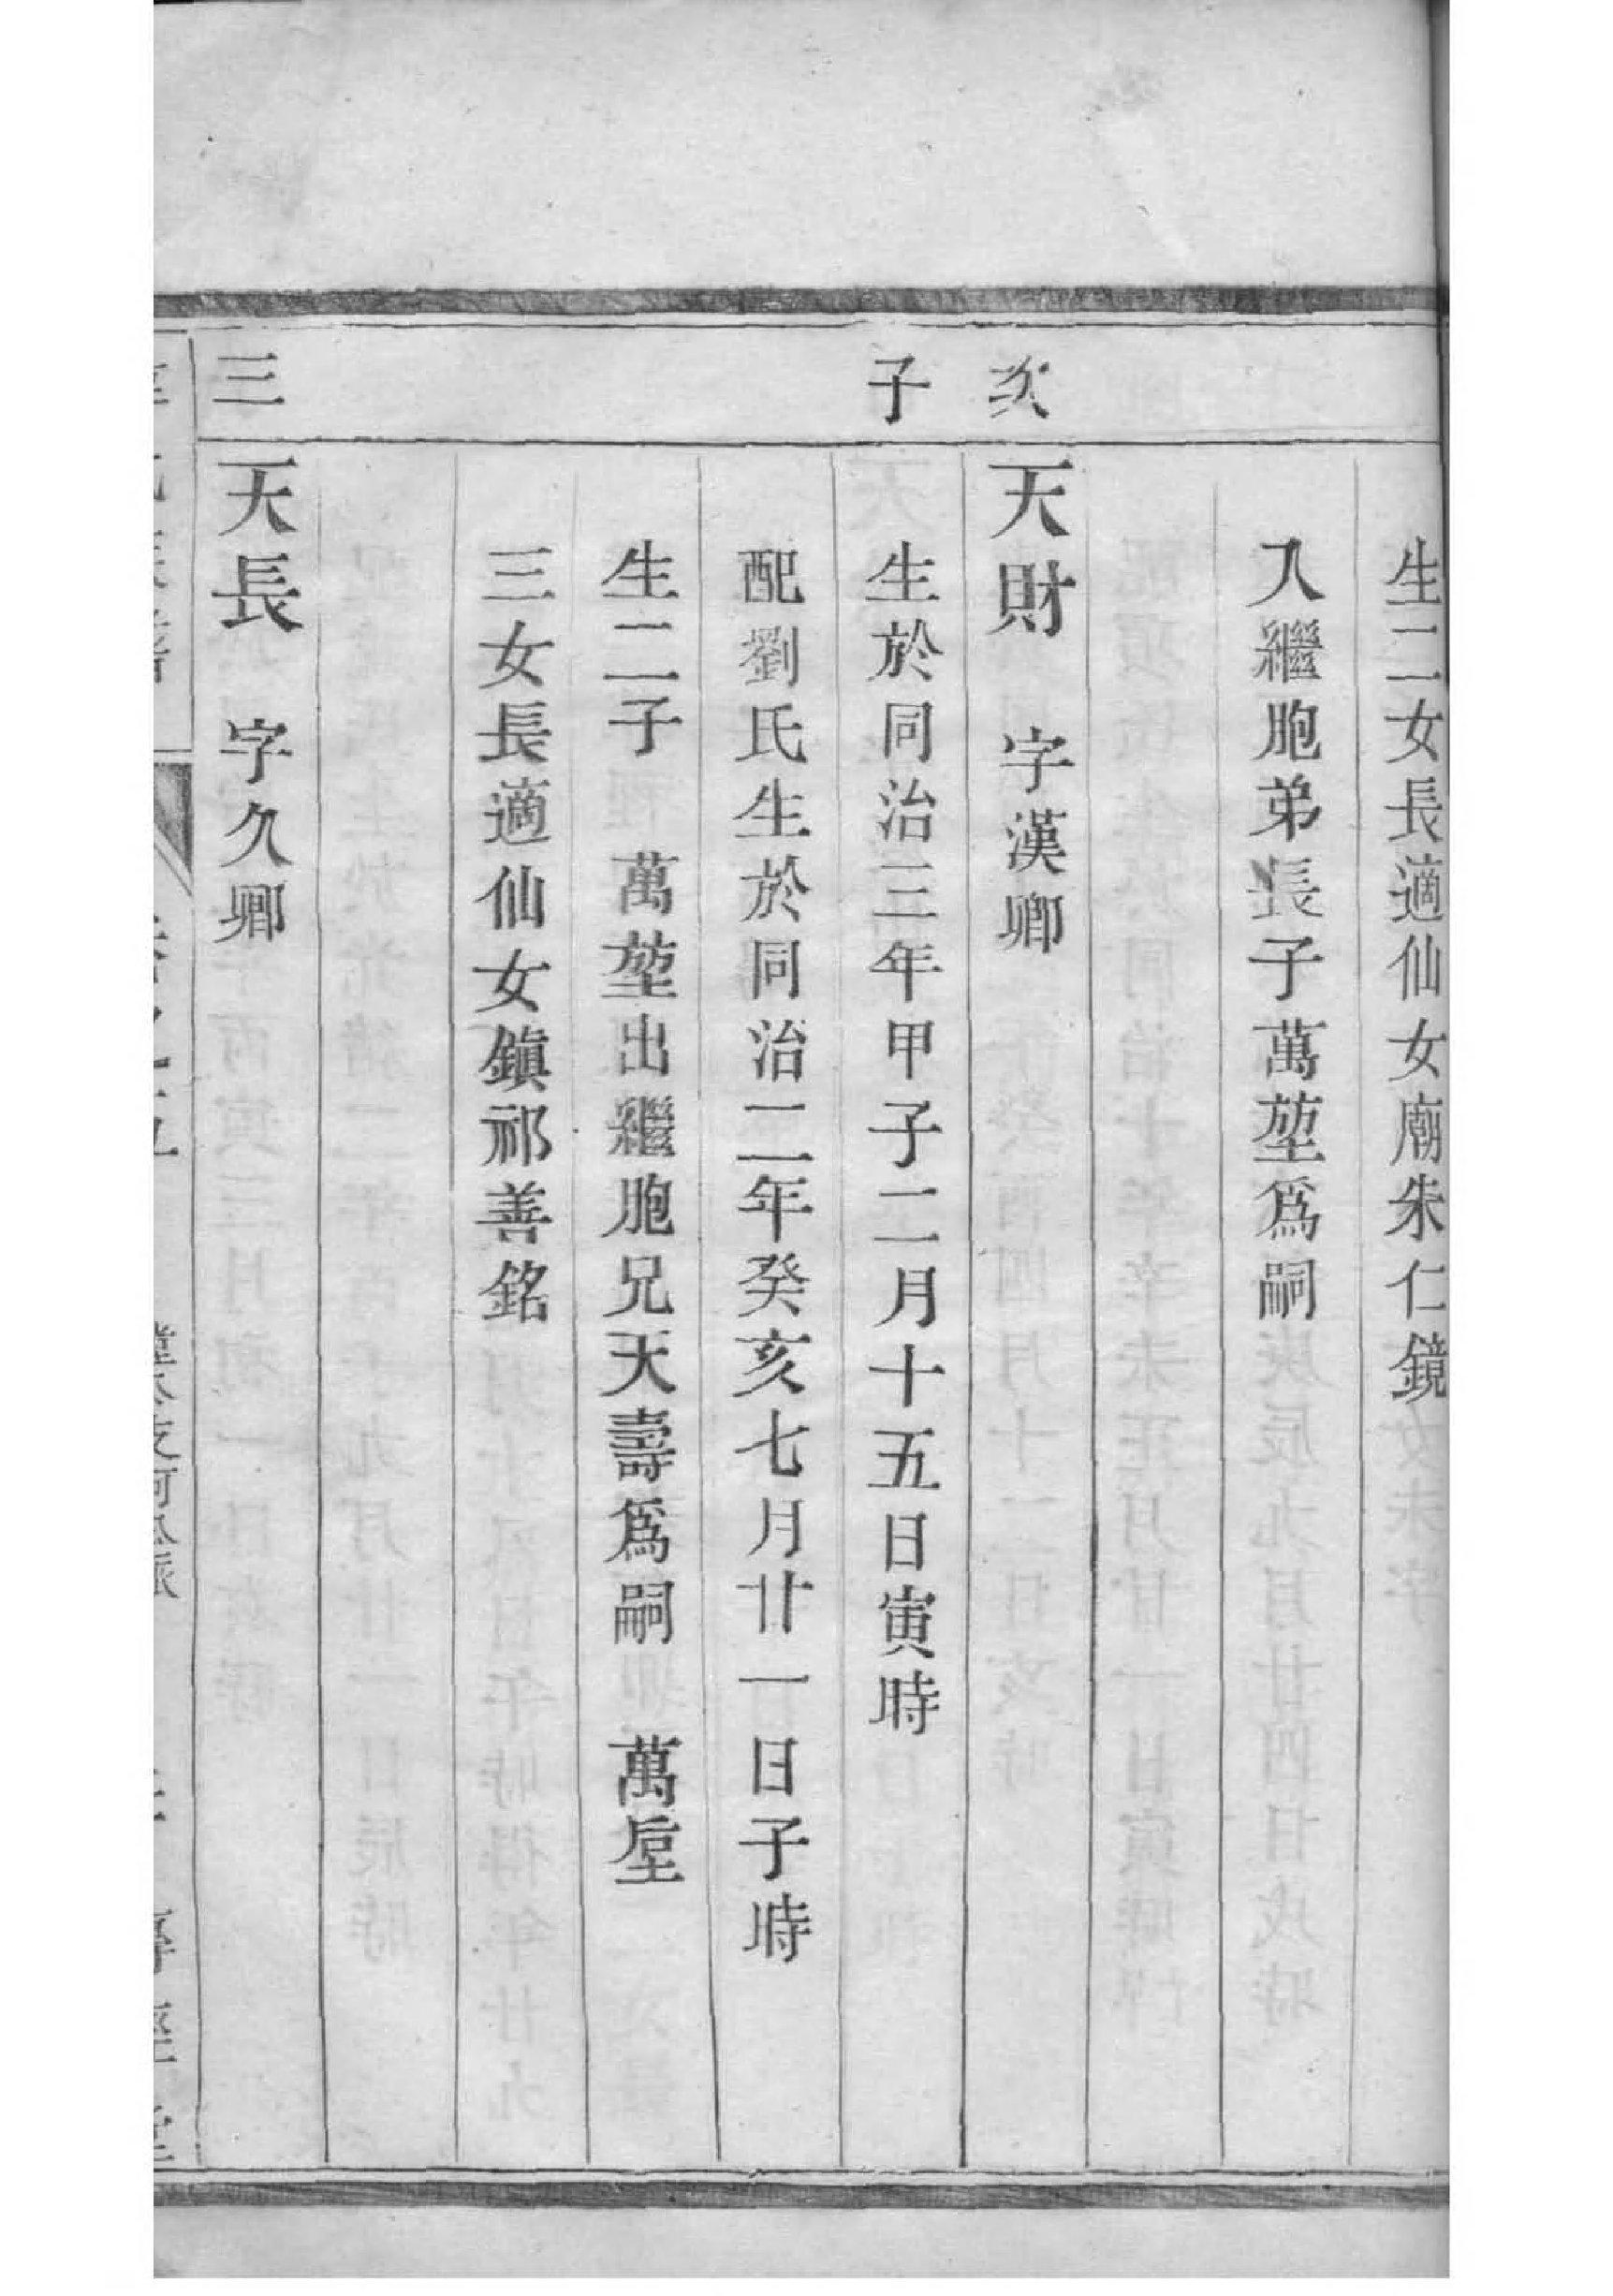 生二女長適仙女廟朱仁鏡
入繼胞弟長子萬堃爲嗣
次 天財 字漢卿
子 生於同治三年甲子二月十五日寅時
配劉氏生於同治二年癸亥七月廿一日子時
生二子 萬堃出繼胞兄天壽爲嗣 萬垕
三女長適仙女鎭祁善銘
三 天長 字久卿